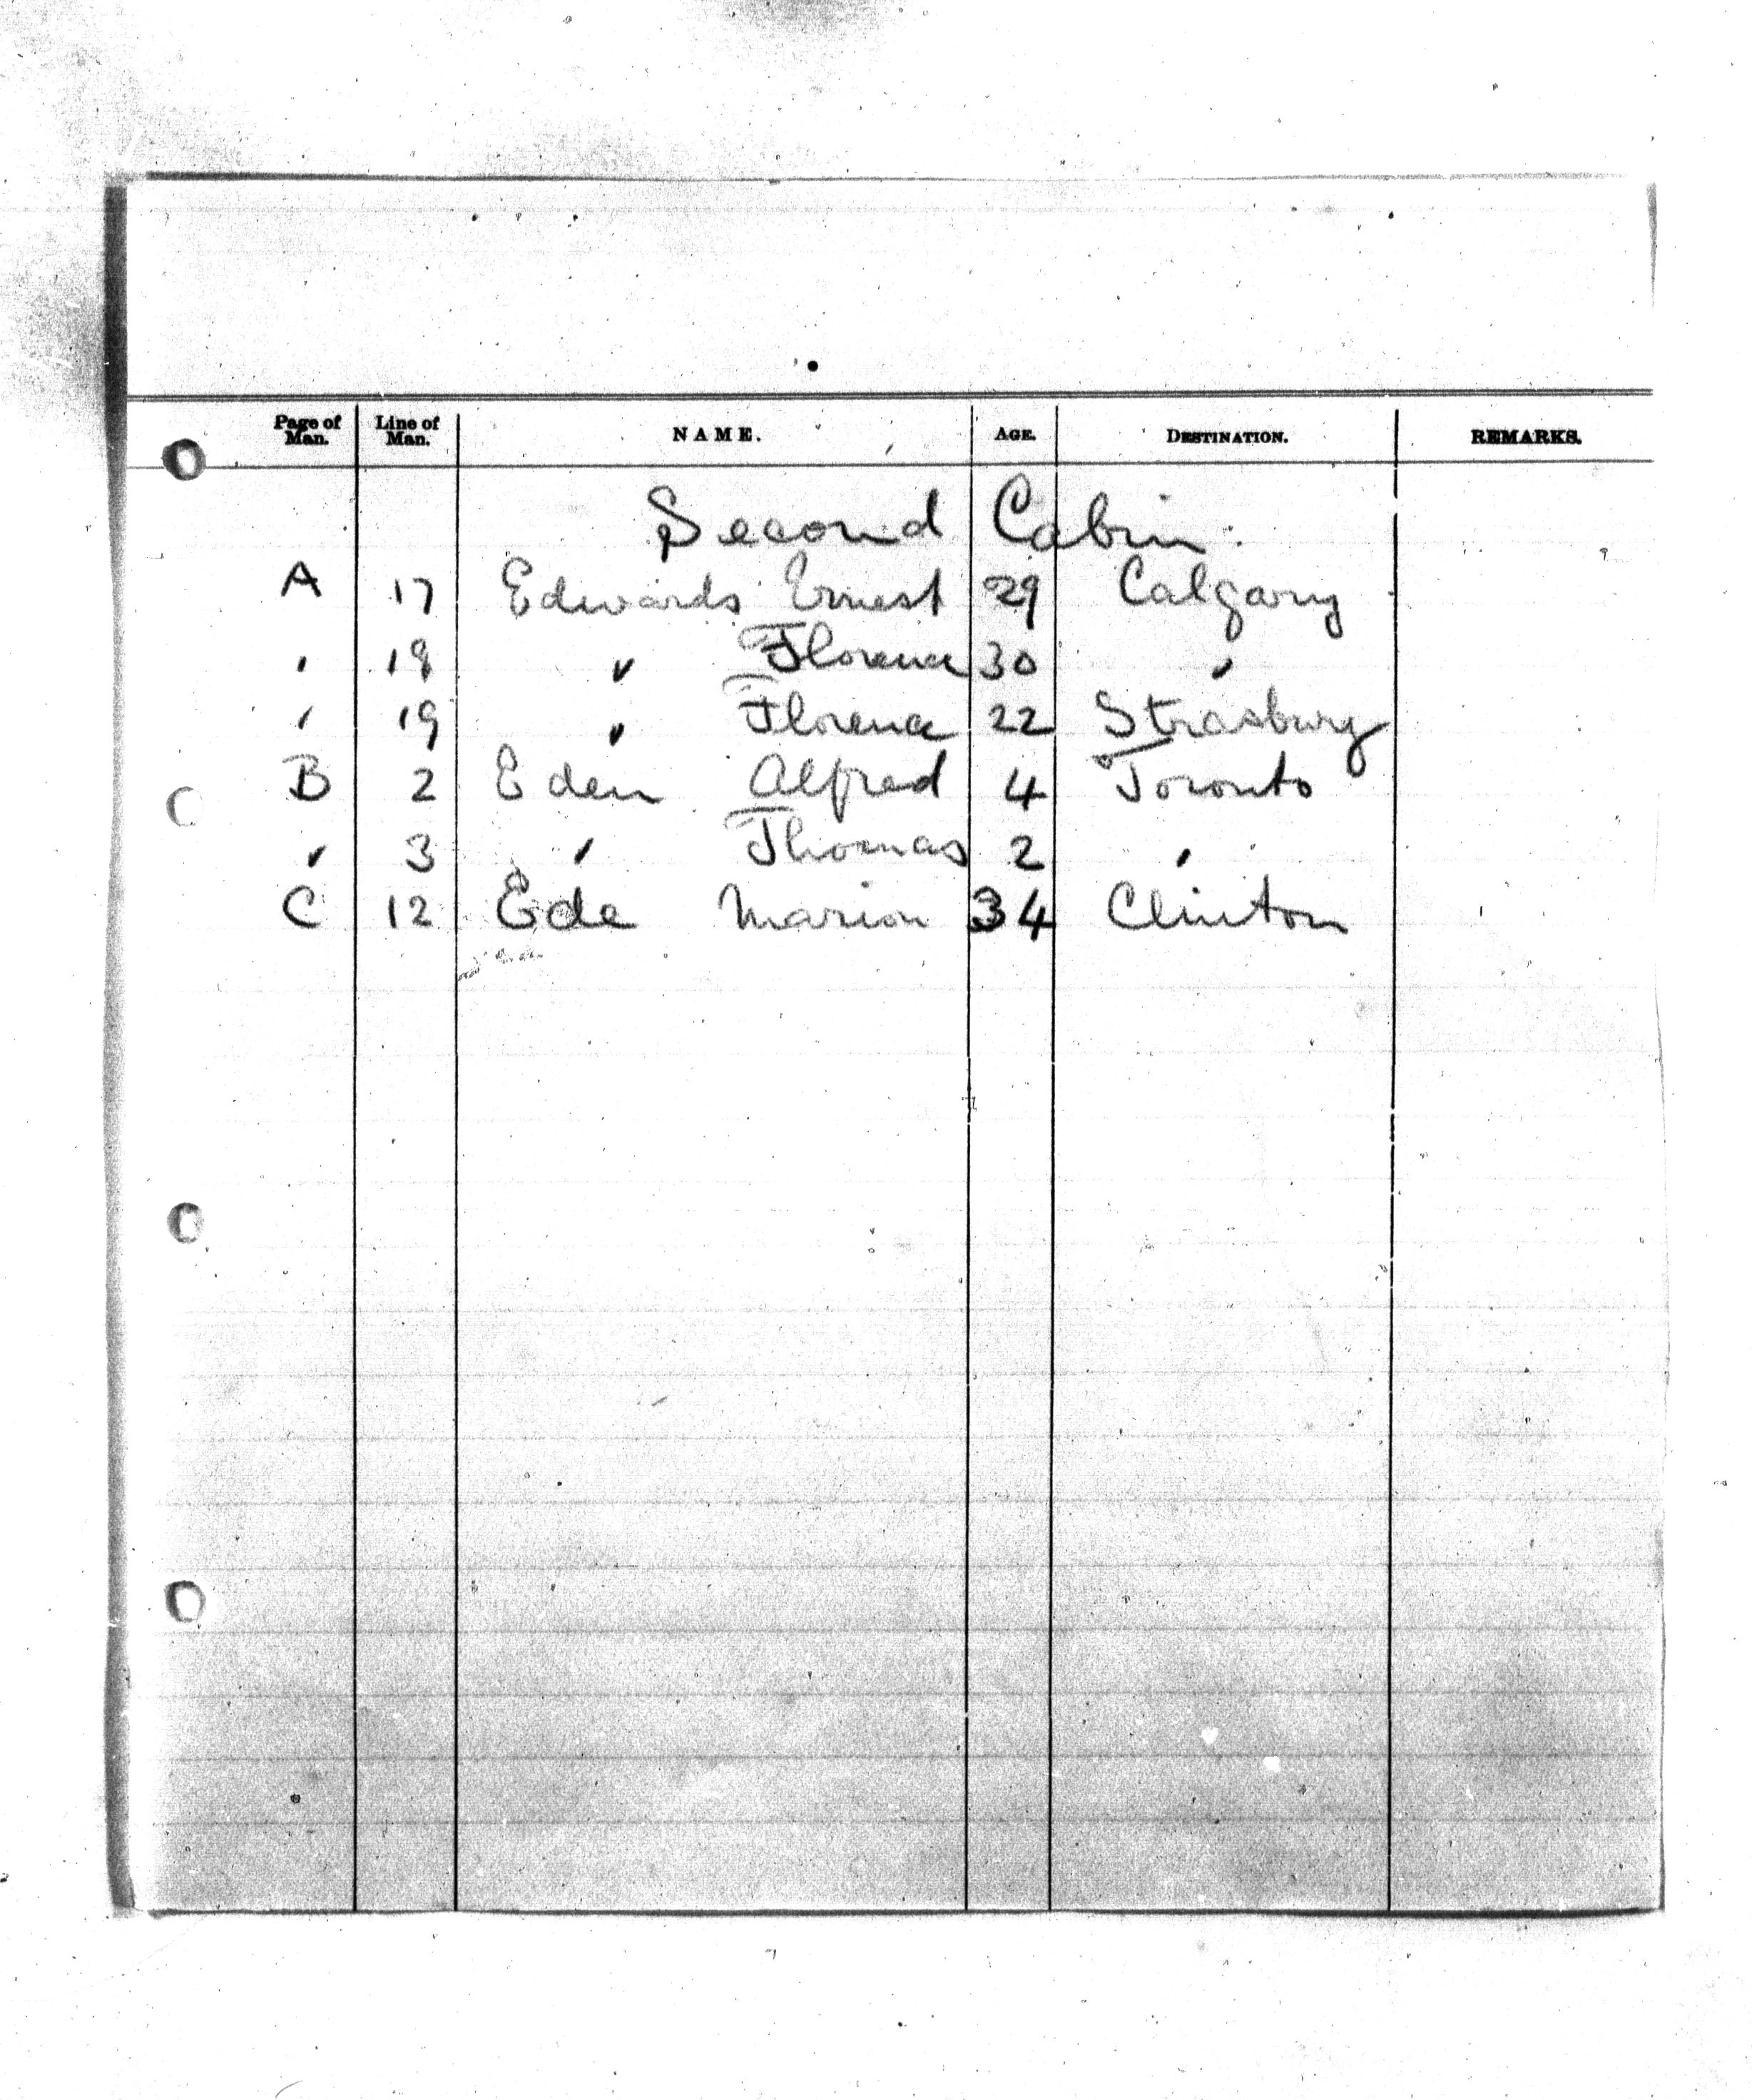 Page of Man. Line of Man. NAME. AGE. DESTINATION. REMARKS.
Second Cabin.
A 17 Edwards Ernest 29 Calgary
" 18 " Florence 30 "
" 19 " Florence 22 Strasburg
B 2 Eden Alfred 4 Toronto
" 3 " Thomas 2 "
C 12 Ede Marion 34 Clinton